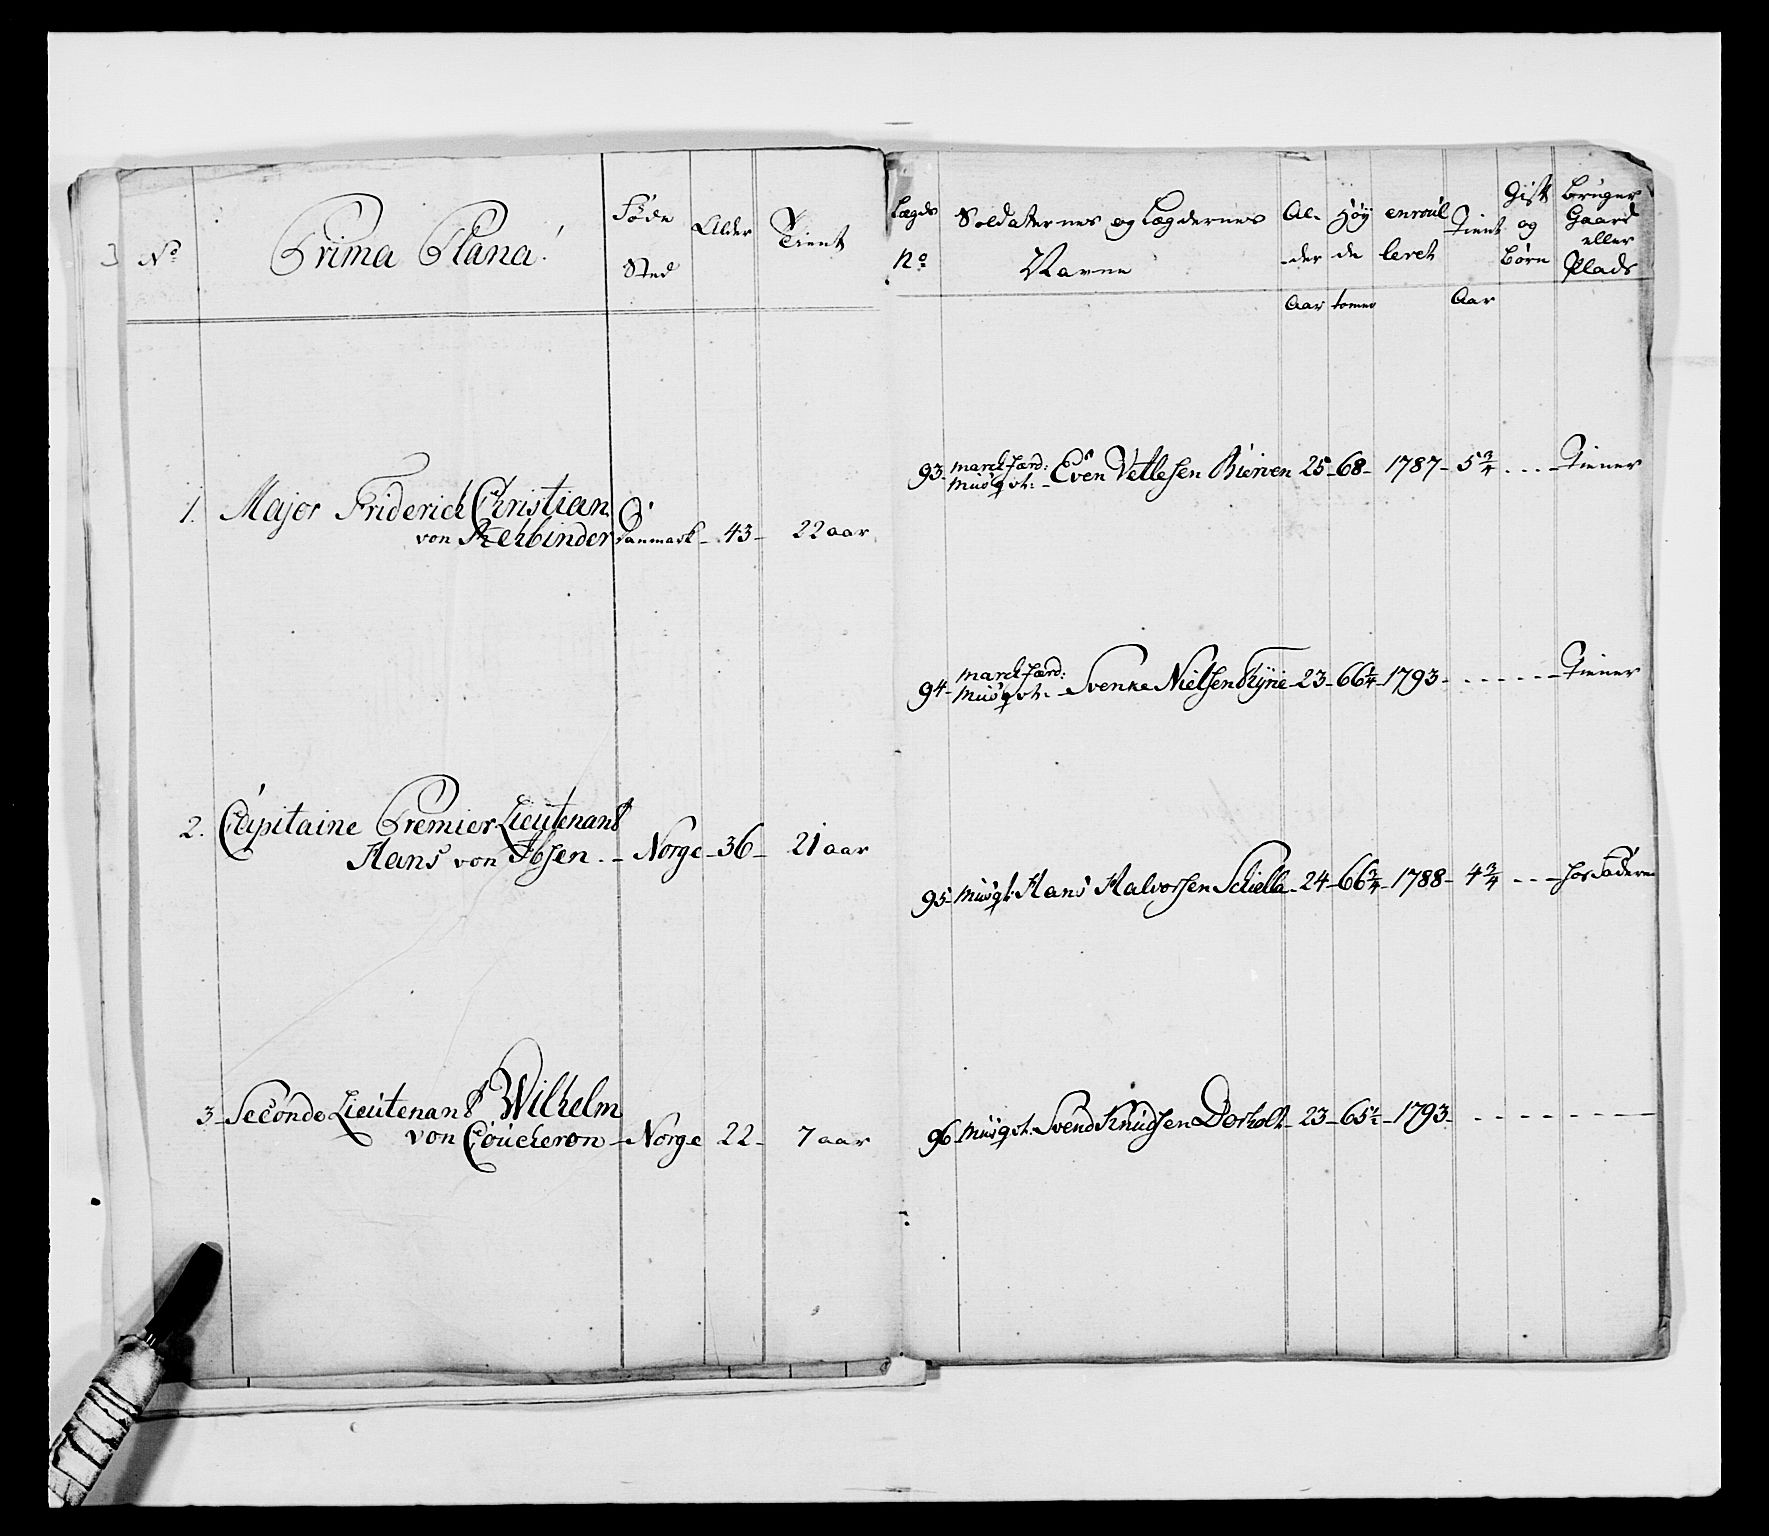 No
Prima Plana
Føde
Sted
Alder
Tient
1. Major Friderich Christian
von Rehbinder Danmark - 43 - 22 aar
2. Capitaine Premier Lieutenant
Hans von Ibsen. - Norge - 36 - 21 aar
3 - Seconde Lieutenant Wilhelm
von Coucheron - Norge 22 - 7 aar
Lægds
No
Soldaternes og Lægdernes
Navne
Al-
der
Aar
Høy
de
tomer
enroul
leret
Tient
Aar
Gift
og
Børn
Bruger
Gaard
eller
Plads
93 - marckfærd:
Musqvt: - Even Vetlesen Bierven 25 - 68 - 1787 - 5 3/4 - - - Tiener
94 - marckfærd:
Musqvt: - Svenke Nielsen 23 - 66 1/4 - 1793 - - - - - - Tiener
95 - Musqt: Hans Halvorsen Schiella - 24 - 66 3/4 - 1788 - 4 3/4 - - - hos Faderen
96 Musqvt: Svend Knudsen Dorholt - 23 - 65 1/2 - 1793 - - - - - - -